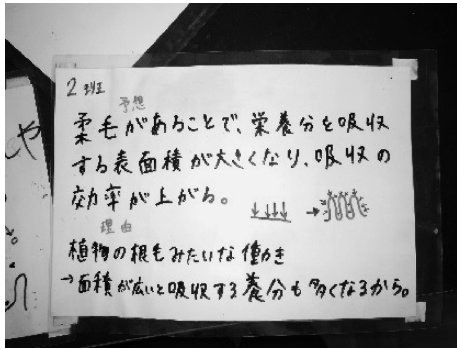 2班
予想
柔毛があることで、栄養分を吸収
する表面積が大きくなり、吸収の
効率が上がる。
理由
植物の根毛みたいな働き
→面積が広いと吸収する養分も多くなるから。
や